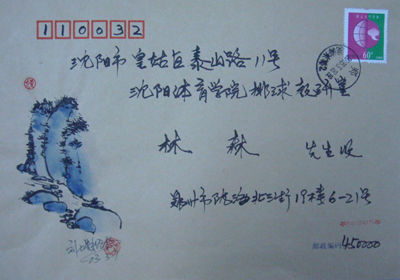 110032
60分
沈阳市皇姑区泰山路11号
沈阳体育学院排球教研室
林森
先生收
郑州市陇海北三街19楼6-21号
邮政编码 450000